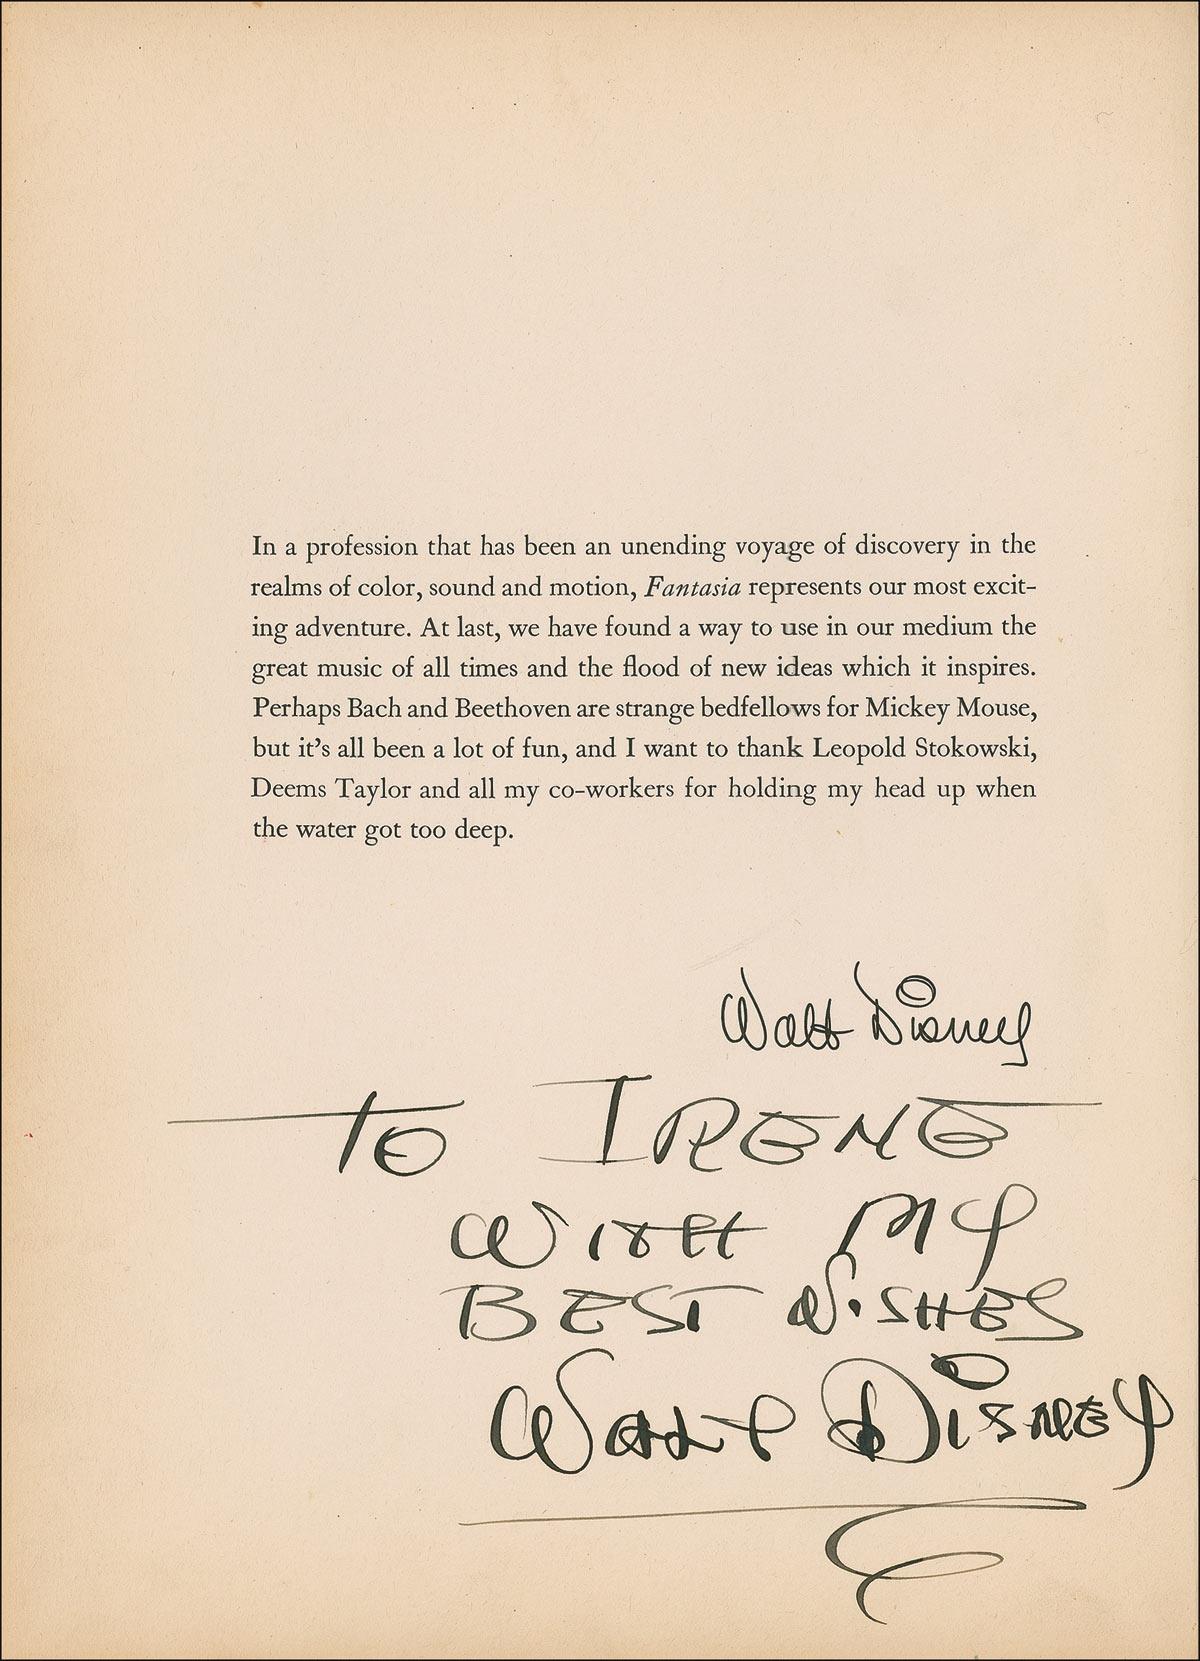 In a profession that has been an unending voyage of discovery in the
realms of color, sound and motion, Fantasia represents our most excit-
ing adventure. At last, we have found a way to use in our medium the
great music of all times and the flood of new ideas which it inspires.
Perhaps Bach and Beethoven are strange bedfellows for Mickey Mouse,
but it's all been a lot of fun, and I want to thank Leopold Stokowski,
Deems Taylor and all my co-workers for holding my head up when
the water got too deep.
Walt Disney
TO IRENE
WITH MY
BEST WISHES
WALT DISNEY